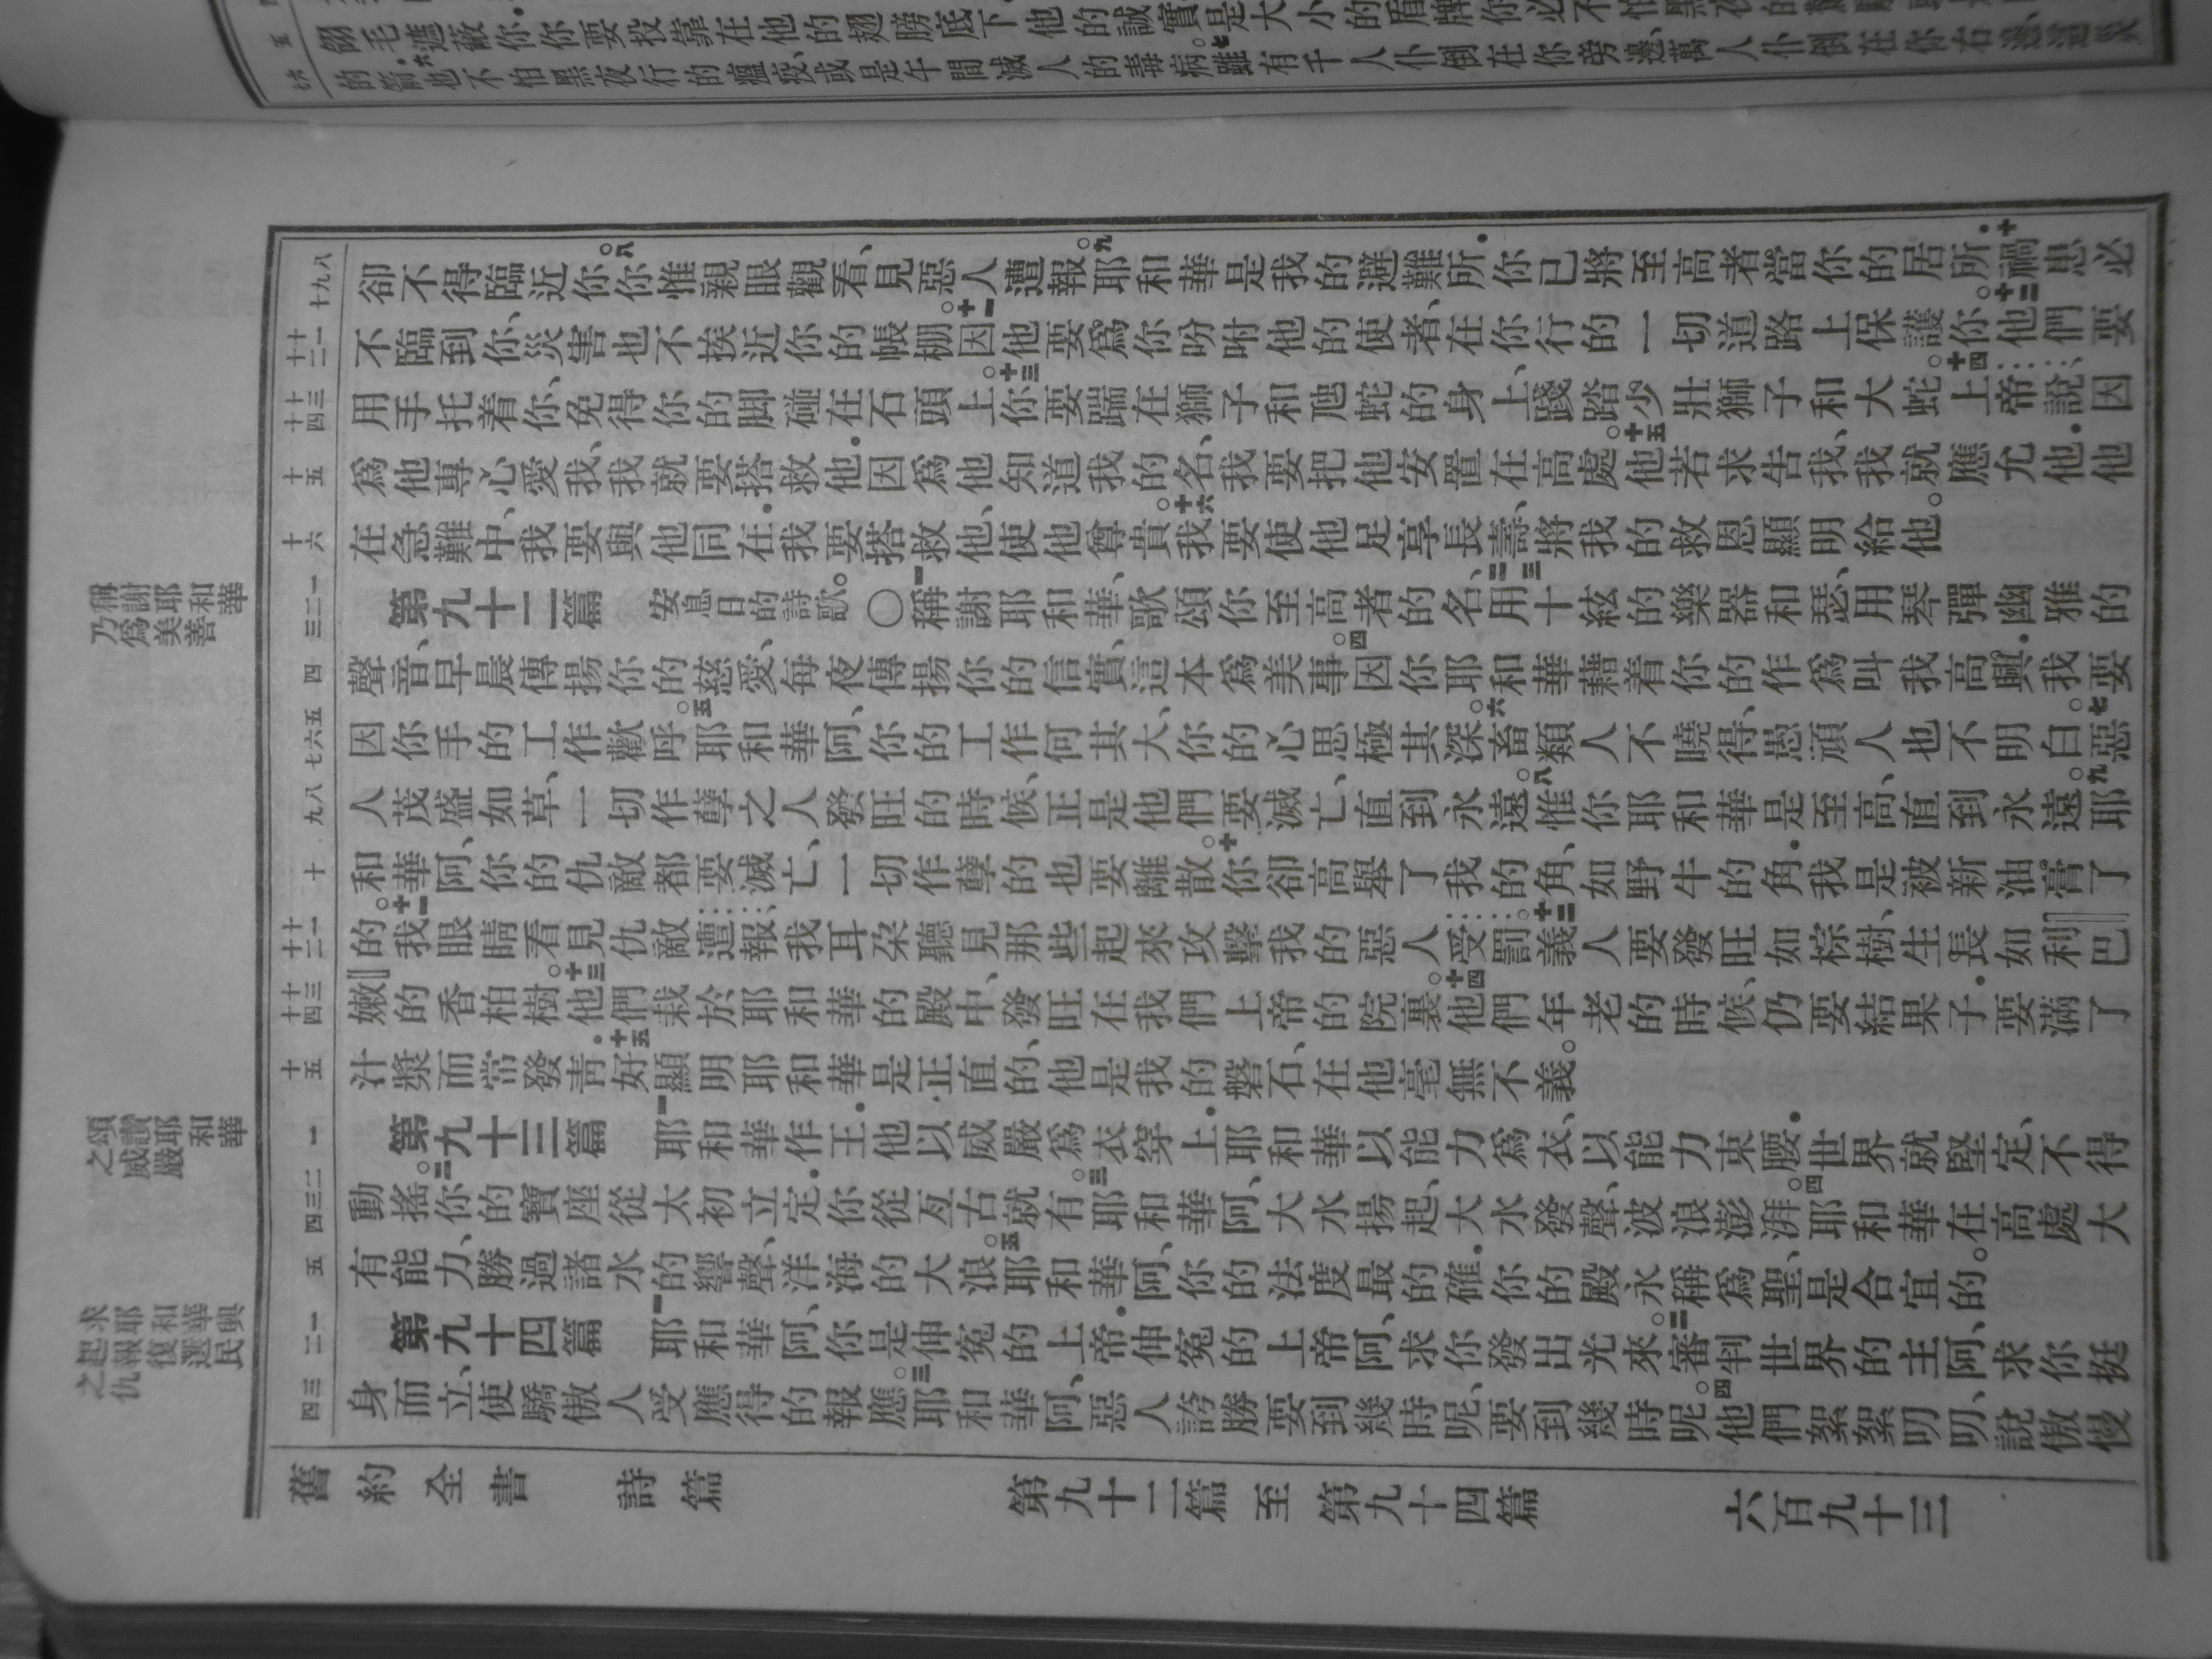 翎毛遮蔽你你要投靠在他的翅膀底下他的誠實是大小的盾牌你必不怕黑夜的
的箭也不怕黑夜行的瘟疫、或是午間滅人的毒病。七雖有千人仆倒在你旁邊、萬人仆倒在你右邊、這災
八九十 卻不得臨近你。八你惟親眼觀看、見惡人遭報。九耶和華是我的避難所．你已將至高者當你的居所．十禍患必
十一十二 不臨到你、災害也不挨近你的帳棚。十一因他要爲你吩咐他的使者、在你行的一切道路上保護你。十二他們要
十三十四 用手托着你、免得你的脚碰在石頭上。十三你要踹在獅子和虺蛇的身上、踐踏少壯獅子和大蛇。十四上帝說、因
十五 爲他專心愛我、我就要搭救他．因爲他知道我的名、我要把他安置在高處。十五他若求告我、我就應允他．他
十六 在急難中、我要與他同在．我要搭救他、使他尊貴。十六我要使他足享長壽、將我的救恩顯明給他。
一二三 第九十二篇 安息日的詩歌。〇一稱謝耶和華、歌頌你至高者的名、二三用十絃的樂器和瑟、用琴彈幽雅的
四 聲音、早晨傳揚你的慈愛、每夜傳揚你的信實、這本爲美事。四因你耶和華藉着你的作爲叫我高興．我要
五六七 因你手的工作歡呼。五耶和華阿、你的工作何其大、你的心思極其深。六畜類人不曉得、愚頑人也不明白。七惡
八九 人茂盛如草、一切作孽之人發旺的時候、正是他們要滅亡、直到永遠。八惟你耶和華是至高、直到永遠。九耶
十 和華阿、你的仇敵都要滅亡、一切作孽的也要離散。十你卻高舉了我的角、如野牛的角．我是被新油膏了
十一十二 的。十一我眼睛看見仇敵遭報、我耳朶聽見那些起來攻擊我的惡人受罰。十二義人要發旺如棕樹、生長如利巴
十三十四 嫩的香柏樹。十三他們栽於耶和華的殿中、發旺在我們上帝的院裏。十四他們年老的時候、仍要結果子．要滿了
十五 汁漿而常發靑．十五好顯明耶和華是正直的、他是我的磐石、在他毫無不義。
一 第九十三篇 一耶和華作王．他以威嚴爲衣穿上．耶和華以能力爲衣、以能力束腰．世界就堅定、不得
二三四 動搖。二你的寶座從太初立定．你從亙古就有。三耶和華阿、大水揚起、大水發聲、波浪澎湃。四耶和華在高處大
五 有能力、勝過諸水的響聲、洋海的大浪。五耶和華阿、你的法度最的確．你的殿永稱爲聖、是合宜的。
一二 第九十四篇 一耶和華阿、你是伸冤的上帝．伸冤的上帝阿、求你發出光來。二審判世界的主阿、求你挺
三四 身而立、使驕傲人受應得的報應。三耶和華阿、惡人誇勝要到幾時呢、要到幾時呢。四他們絮絮叨叨、說傲慢
稱謝耶和華乃爲美善
頌讚耶和華之威嚴
求耶和華興起報復選民之仇
舊約全書 詩篇 第九十二篇至第九十四篇 六百九十三